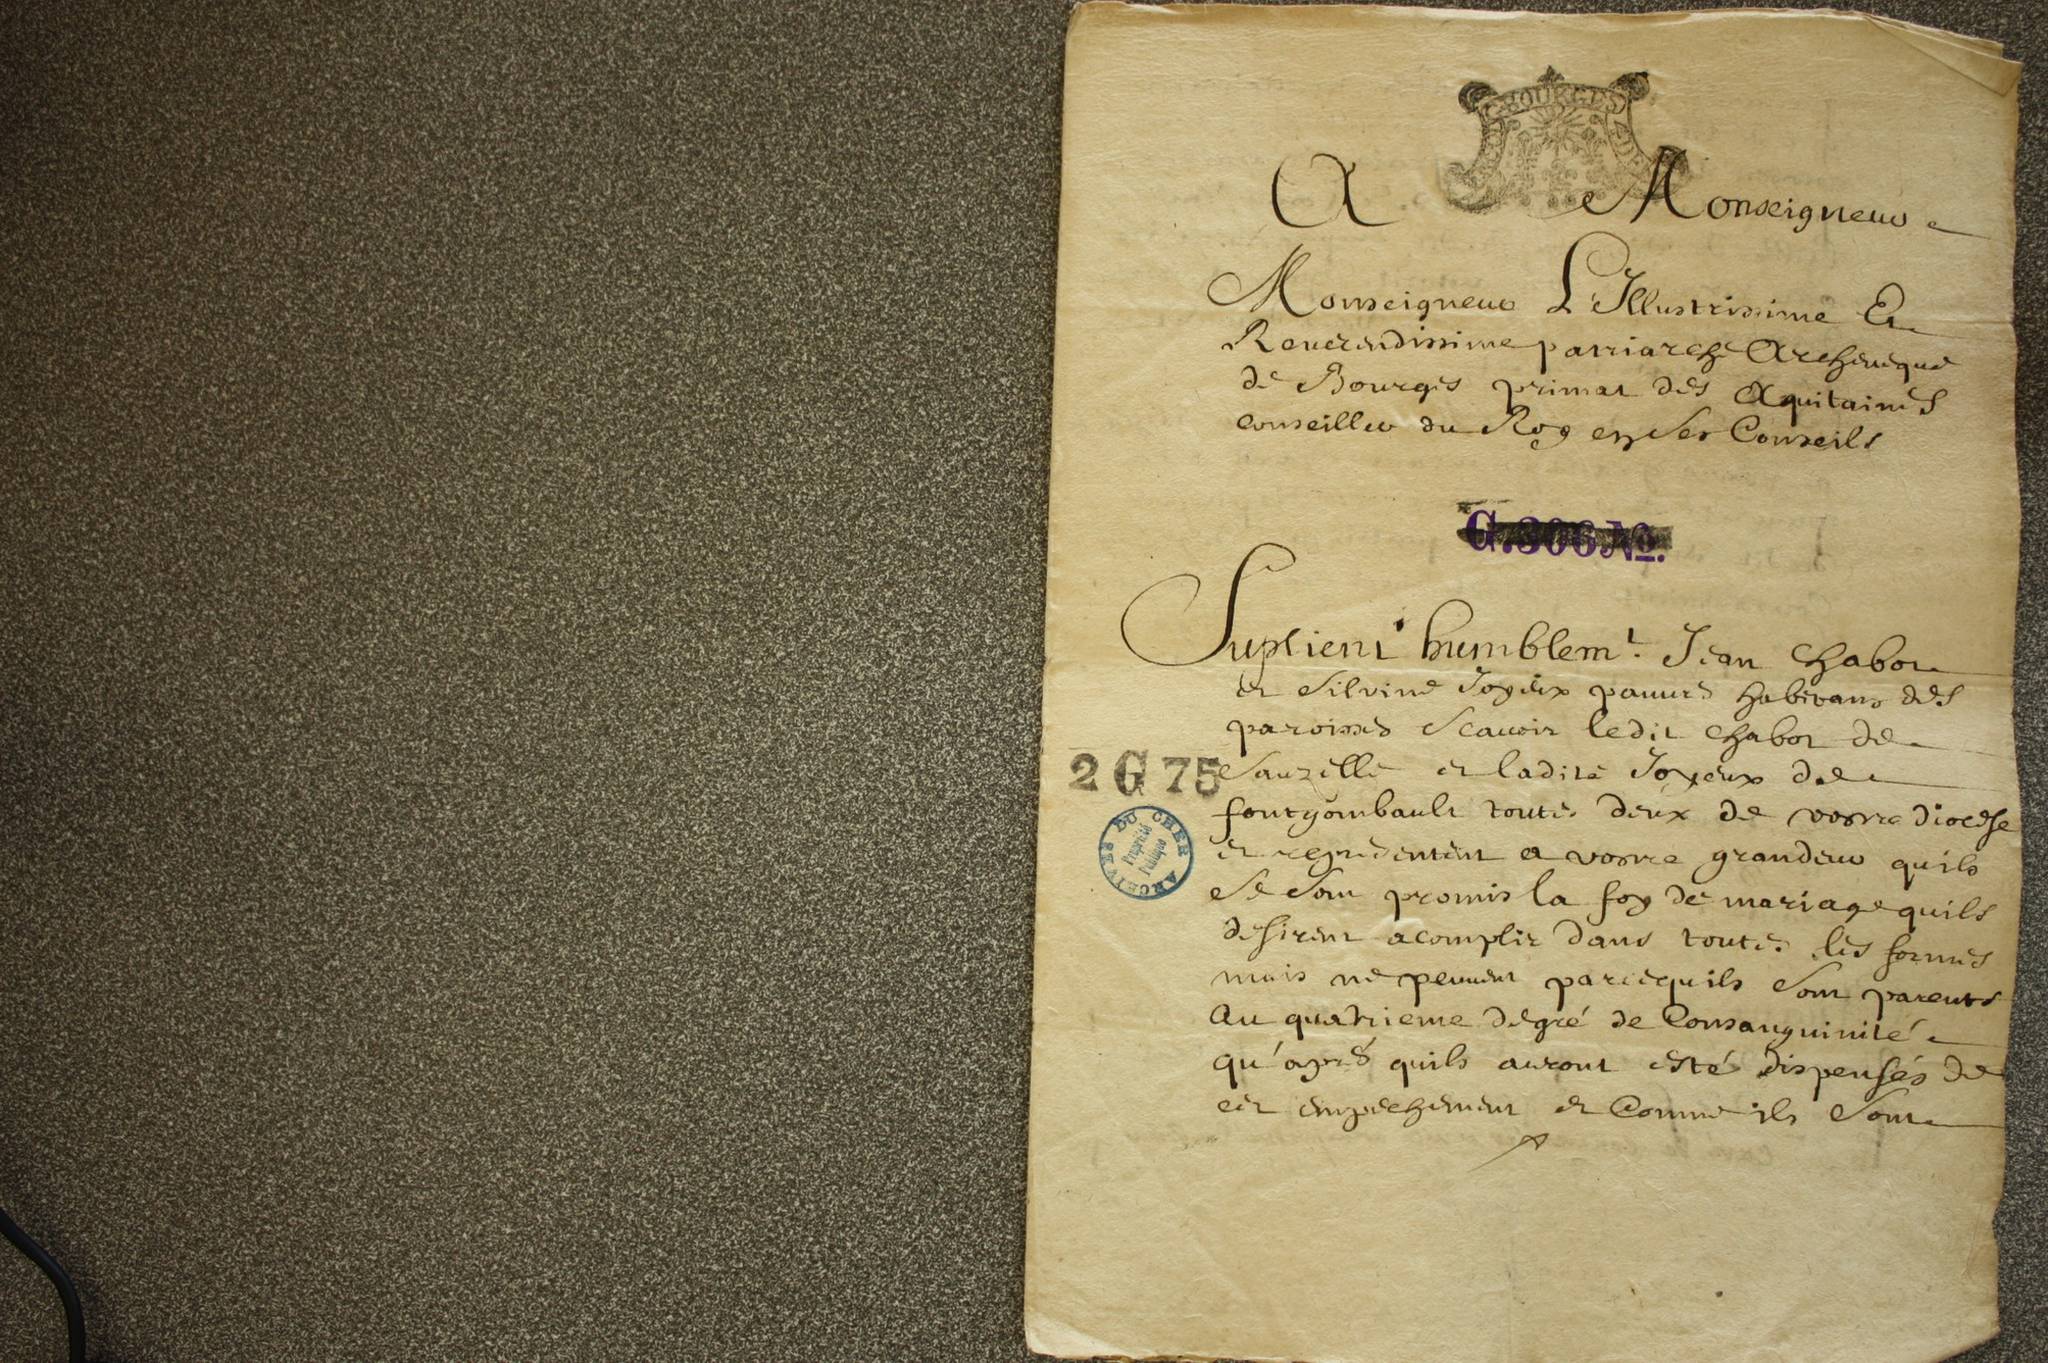 BOURGES
A Monseigneur
Monseigneur L'Illustrissime Et
Reuerendissime patriarche Archeueque
de Bourges primat des Aquitaines
conseiller du Roy en ses Conseils
G.306 No.
Suplient humblemt. Jean Chabot
et Silvine Joyeux pauures habitans des
paroisses scauoir ledit Chabot de
2 G 75
Sauzelle et ladite Joyeux de
fontgombault toutes deux de vostre diocese
ARCHIVES DU CHER
Propriété
Publique
et representent a vostre grandeur quils
se sont promis la foy de mariage quils
desirent acomplir dans toutes les formes
mais ne peuuent parcequils sont parents
au quatrieme degré de Consanguinité
qu'aprés quils auront esté dispensés de
cet empechement et Comme ils sont